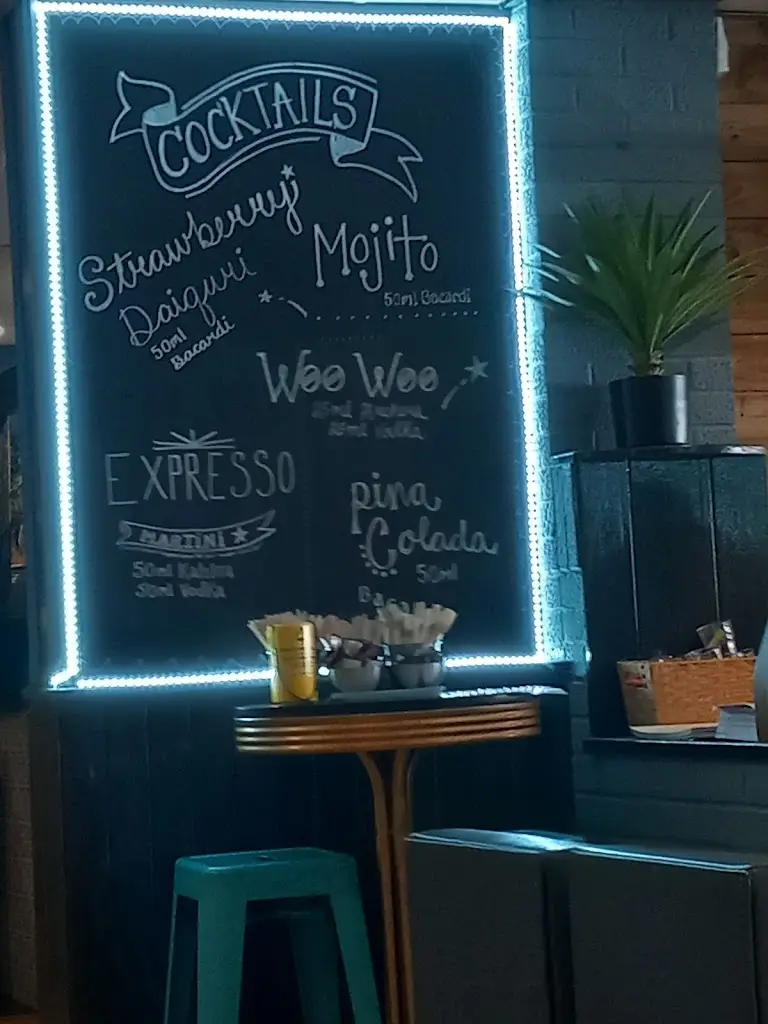 COCKTAILS
Strawberry
Daiquri
50ml
Bacardi
Mojito
50ml Bacardi
Woo Woo
Vodka
EXPRESSO
MARTINI
50ml Kahlua
50ml Vodka
pina
Colada
50ml